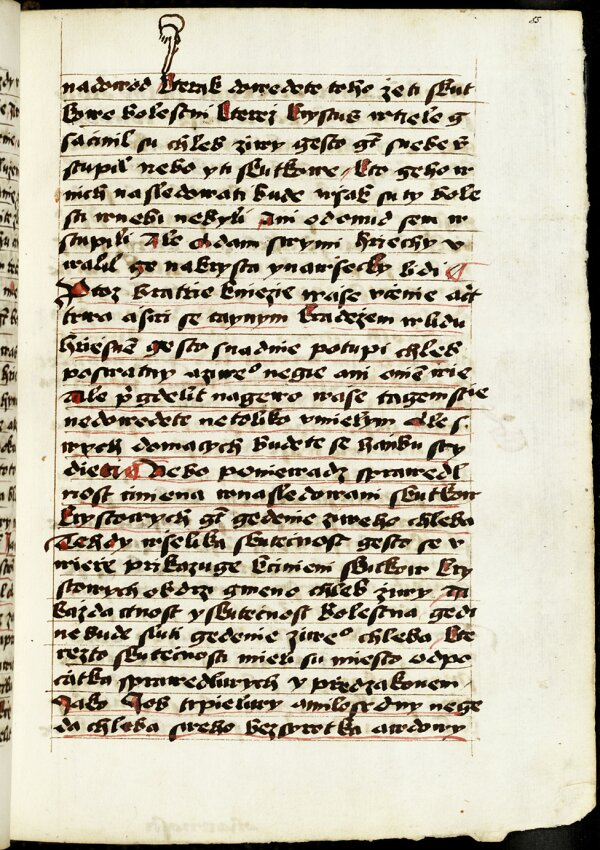 55
na dowod kterak dowedete toho ze ti skut
kowe bolestni kterez krystus w tiele g
sa cinil su chleb ziwy gesto gt s nebe s
stupil nebo y ti skutkowe kto geho w
nich nasledowati bude wssak su ty bole
sti w nebi nebyli Ani odomud sem w
stupili Ale Adam swymi hriechy v
walil ge na krysta y na wssecky lidi
Protoz kratkie kniezie wase vcenie
trwa a siti se taynym kradezem w lidu
hriessne gesto snadnie potupi chleb
poswatny a ziweo negie ani
Ale gdelit nagewo wase tagemstwie
nedowedete netoliko vmielym Ale s
wych domacych budete se hanbu sty
dieti Nebo poniewadz sprawedl
nost gmena w nasledowani skutkow
krystowych gt gedenie ziweho chleba
Tehdy wselika skutecnost gesto se v
wiere prikazuge s cinieni skutkow kry
stowych obdrz gmeno chleb ziwy Ta
kazda ctnost y skutecnost bolestna gedi
ne bude sluti gedenie ziweo chleba kte
rezto skutecnosti mieli su miesto od po
catka sprawedliwych v przed zakonem
Jako Job trpieliwy a milosrdny nege
da chleba sweho bez syrotka a wdowy